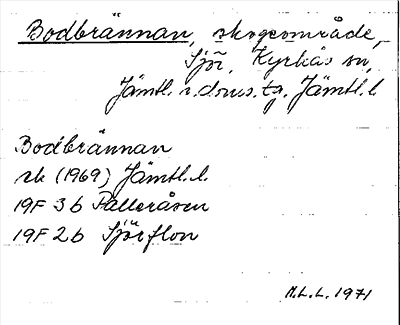 Bodbrännan, skogsområde,
Sjör, Kyrkås sn,
Jämtl. n. doms. tg. Jämtl. l
Bodbrännan
ek (1969) Jämtl. l.
19F 3b Palleråsen
19F 2b Sjörflon
M.L.L. 1971